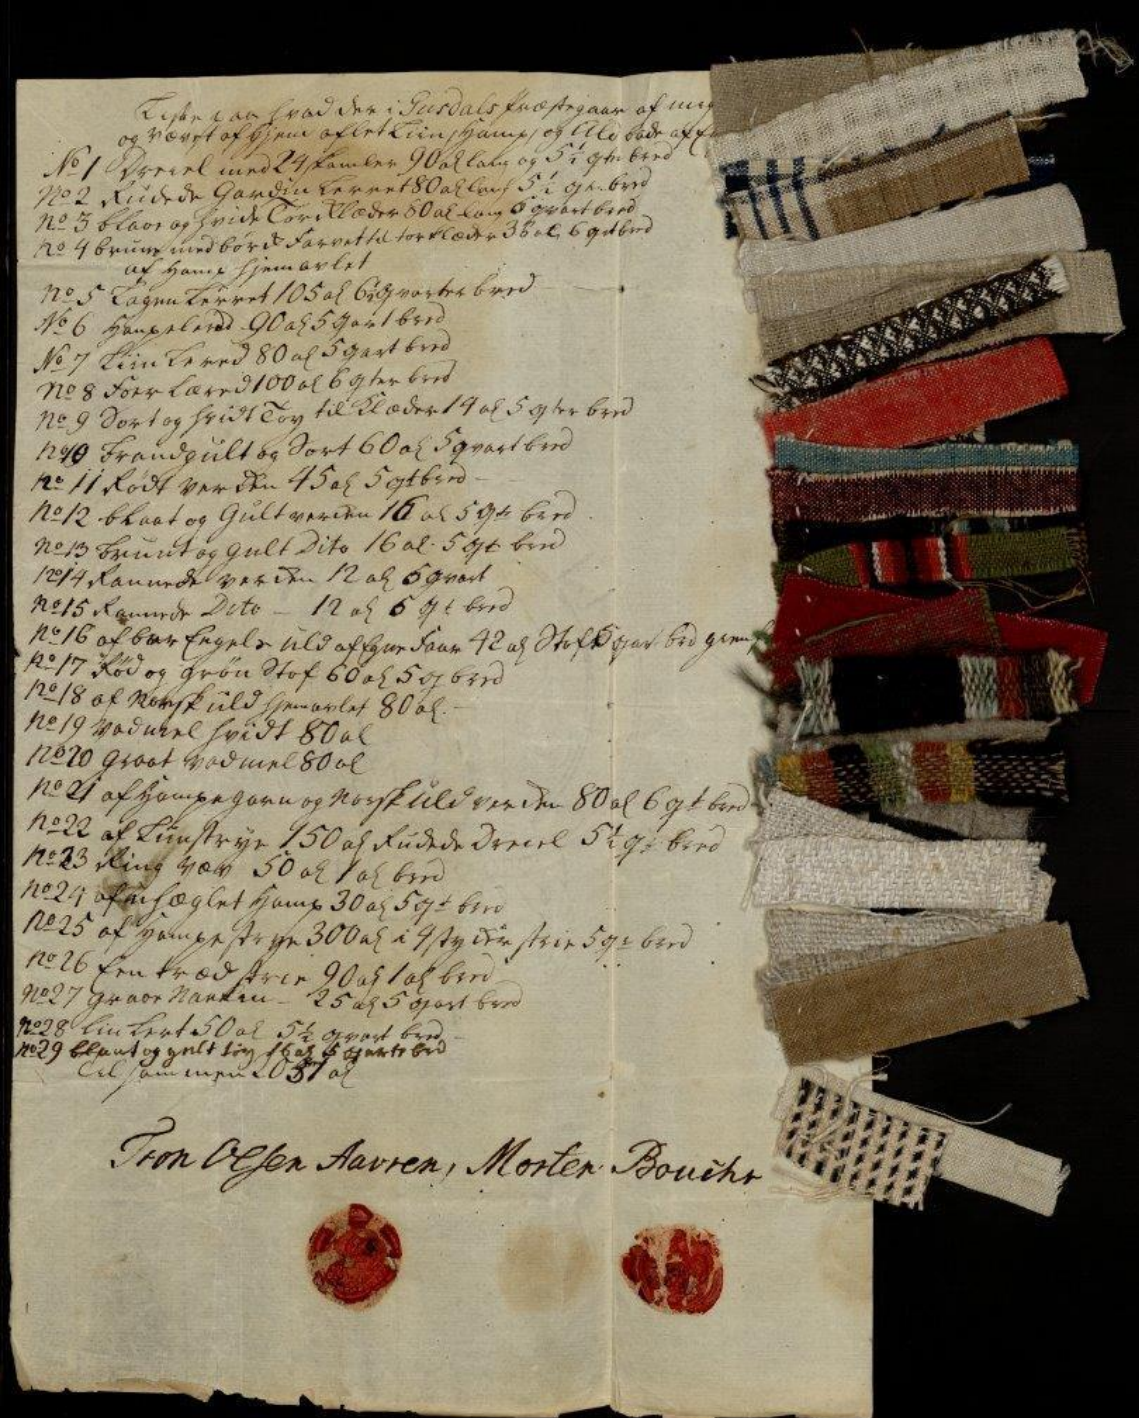 Liste paa hvad der i Gusdals Præstegaar af mig
og Været af hjem aflet Liin, Hamp, og Uld bode af
No 1 Dreiel med 24 skamler 90 al lang og 5½ qtr bred
No 2 Rudede Gardin Lerret 80 al lang 5½ qr bred
no 3 blaae og hvide Torklæder 80 al lang 6 qvart bred
no 4 brune med børd Farvet til torklæder 36 al 6 qrt bred
af Hamp hjemavlet
no 5 Lagen Lerret 105 al 6 qvarter bred
No 6 Hampelerid 90 al 5 qart bred
No 7 Liin Lered 80 al 5 qart bred
no 8 Foer Læred 100 al 6 qter bred
no 9 Sort og hvidt Toy til Klæder 14 al 5 qter bred
no 10 Brandgult og Sort 60 al 5 qvart bred
no 11 Rødt verken 45 al 5 qt bred
no 12 blaat og Gult verken 16 al 5 qt bred
no 13 brunt og gult Dito 16 al 5 qt bred
no 14 Rannede verken 12 al 5 qvart
no 15 Rannede Dito 12 al 5 qt bred
no 16 af bar Engels uld af Egne Faar 42 al Stof 5 qvar bred
no 17 Rød og grøn Stof 60 al 5 q bred
no 18 af Norsk uld hjemavlet 80 al
no 19 Vadmel hvidt 80 al
no 20 Graat vadmel 80 al
no 21 af Hampegarn og Norsk uld verken 80 al 6 qt bred
no 22 af Liinstrye 150 al Rudede Dreiel 5½ qt bred
no 23 Ring Væv 50 al 1 al bred
no 24 af uhæglet Hamp 30 al 5 qt bred
no 25 af Hampe strye 300 al i 4 stykker strie 5 qr bred
no 26 Een træd strie 90 al 1 al bred
no 27 graae Nankin 25 al 5 qvart bred
no 28 Lin Lert 50 al 5½ qvart bred
no 29 blaat og gult tøy 16 al 5 qvarte bred
Til sammen 2037 al
Tron Olsen Aavren, Morten